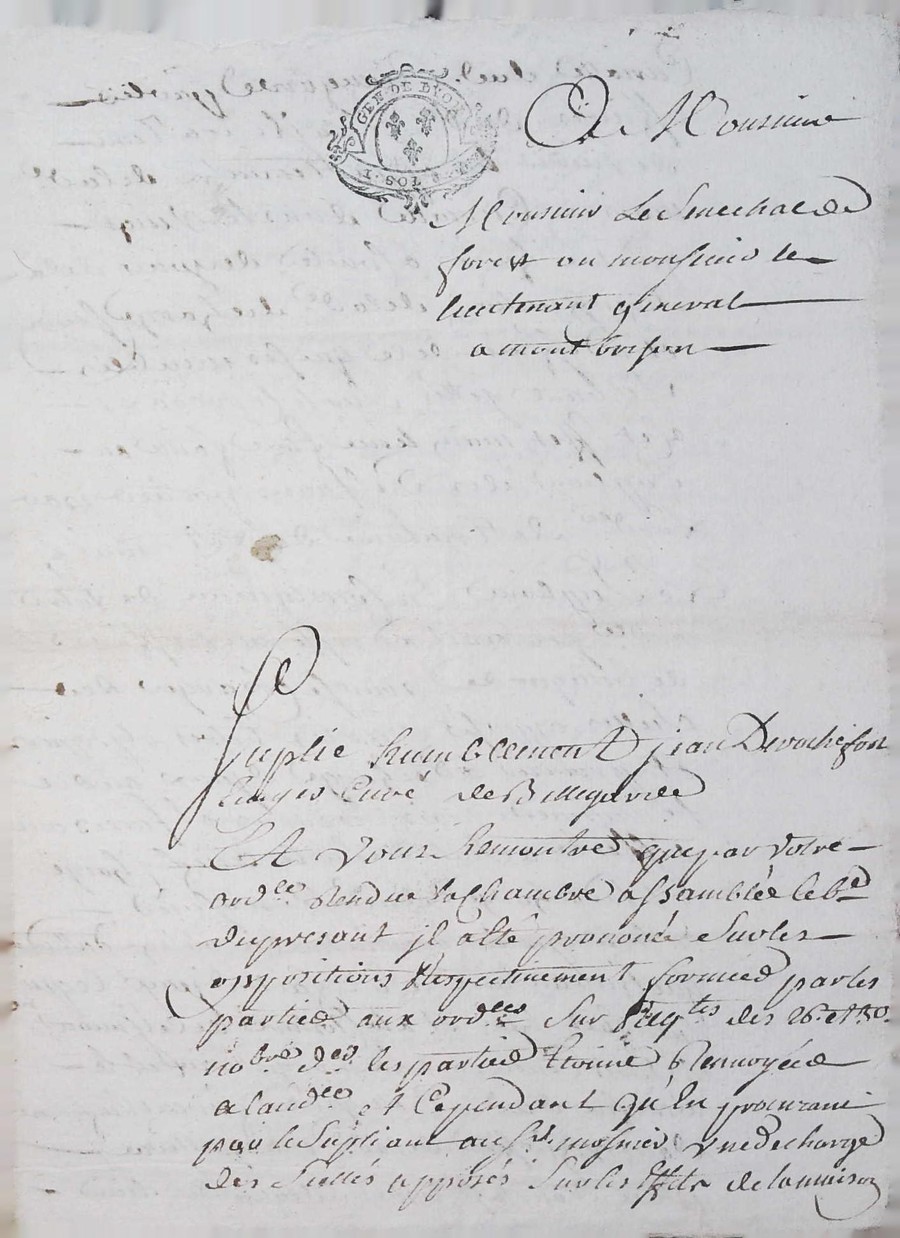 GEN. DE LYON
SOL.
A Monsieur
Monsieur Le Senechal de
forest ou monsieur le
lieutenant general
a montbrison
Suplie humblement jean Derochefort
Curé de Bellegarde
Et vous Remontre que par votre
ordce Rendue la Chambre assamblée le
du presant il a eté prononcé sur les
oppositions Respectivement formeés par les
parties aux ordces sur Reqtes des 26e et 30e
nobre der les parties Renvoyées
a laudce et Cependant qu'En procurant
par le supliant au sr mosnier une decharge
des scellés apposés sur les effets de la maison